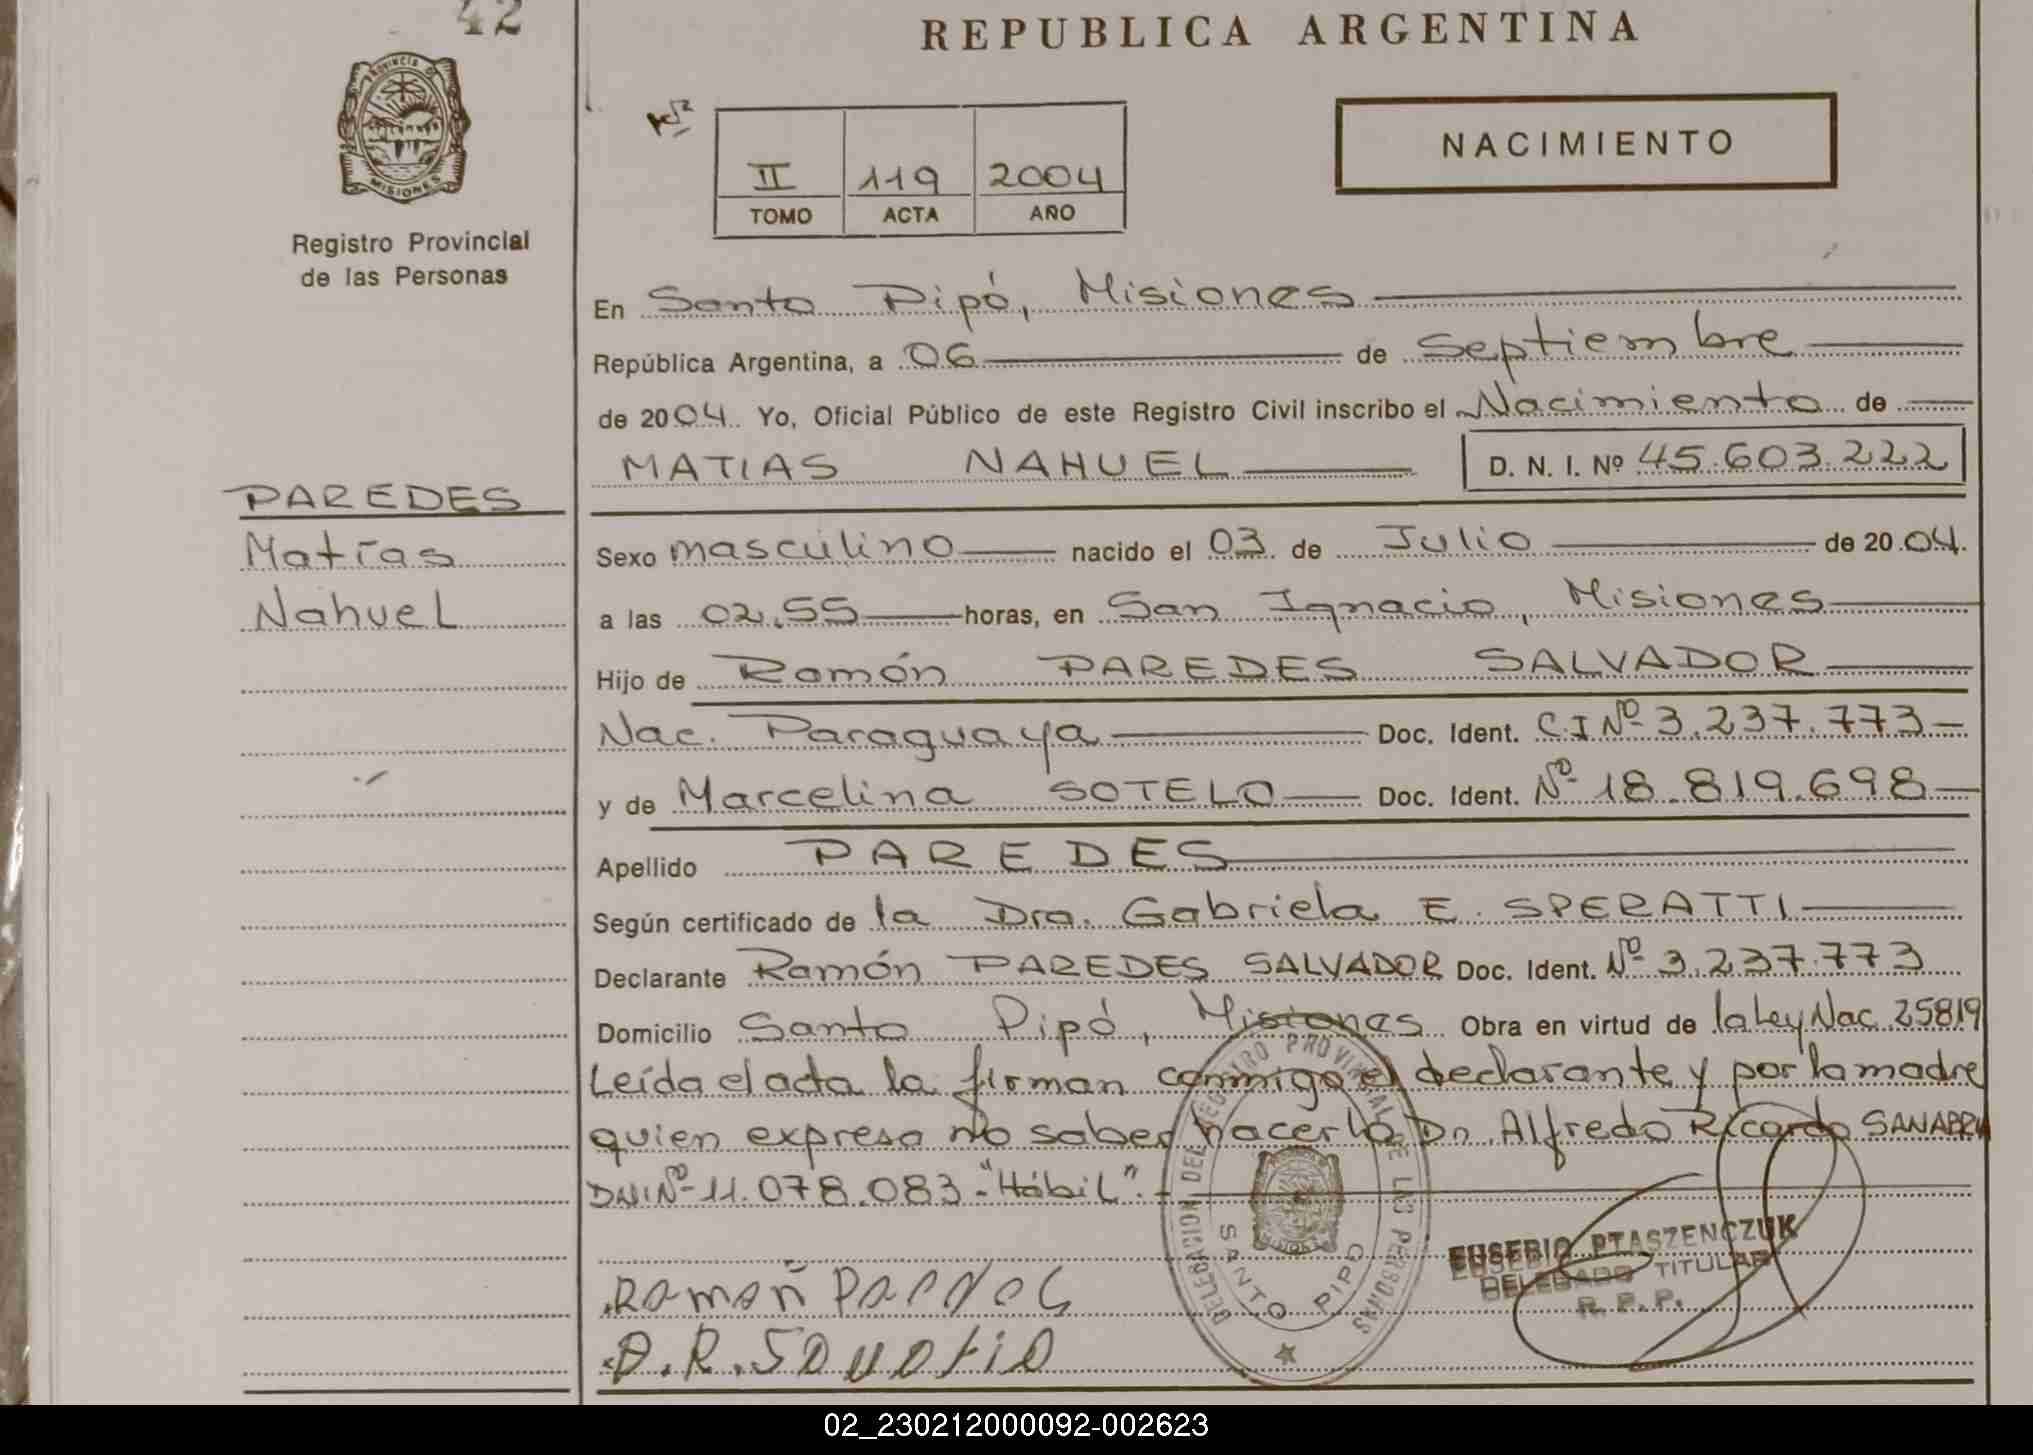 42
REPUBLICA ARGENTINA
PROVINCIA DE
MISIONES
Registro Provincial
de las Personas
NACIMIENTO
II 119 2004
TOMO ACTA AÑO
En Santo Pipó, Misiones
República Argentina, a 06 de Septiembre
de 2004. Yo, Oficial Público de este Registro Civil inscribo el Nacimiento de
MATIAS NAHUEL D. N. I. Nº 45.603.222
PAREDES
Matías
Nahuel
Sexo masculino nacido el 03 de Julio de 2004.
a las 02,55 horas, en San Ignacio, Misiones
Hijo de Ramón PAREDES SALVADOR
Nac. Paraguaya Doc. Ident. C.I Nº 3.237.773
y de Marcelina SOTELO Doc. Ident. Nº 18.819.698
Apellido PAREDES
Según certificado de la Dra. Gabriela E. SPERATTI
Declarante Ramón PAREDES SALVADOR Doc. Ident. Nº 3.237.773
Domicilio Santo Pipó, Misiones Obra en virtud de la Ley Nac. 25819
Leída el acta la firman conmigo el declarante y por la madre
quien expresa no saber hacerlo Dn. Alfredo Ricardo SANABRIA
DNI Nº 11.078.083 - "Hábil".
DELEGACION DEL REGISTRO PROVINCIAL DE LAS PERSONAS
SANTO PIPO
EUSEBIO PTASZENCZUK
DELEGADO TITULAR
R. P. P.
Ramón Paredes
A.R. Sanabria
02_230212000092-002623